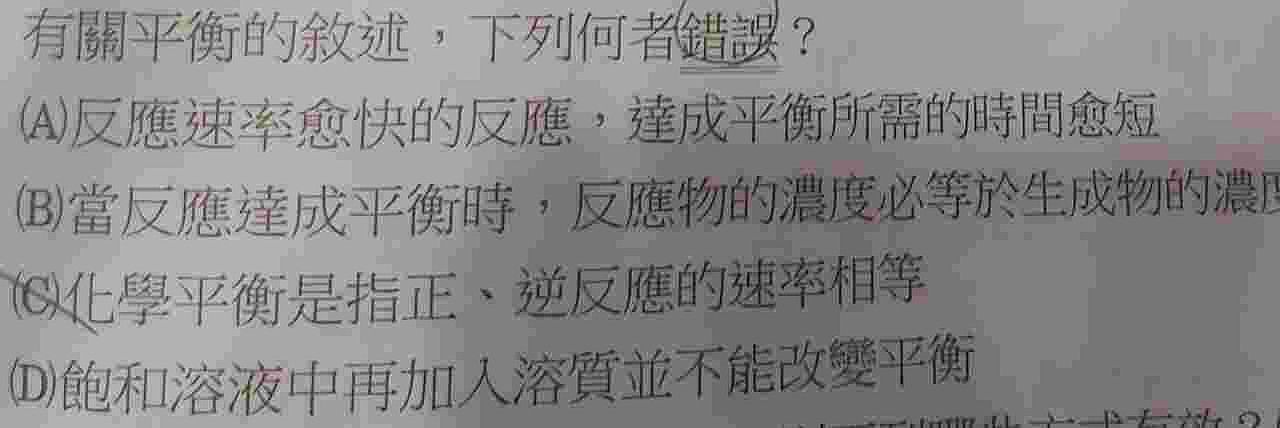 有關平衡的敘述，下列何者錯誤？
(A)反應速率愈快的反應，達成平衡所需的時間愈短
(B)當反應達成平衡時，反應物的濃度必等於生成物的濃度
(C)化學平衡是指正、逆反應的速率相等
(D)飽和溶液中再加入溶質並不能改變平衡